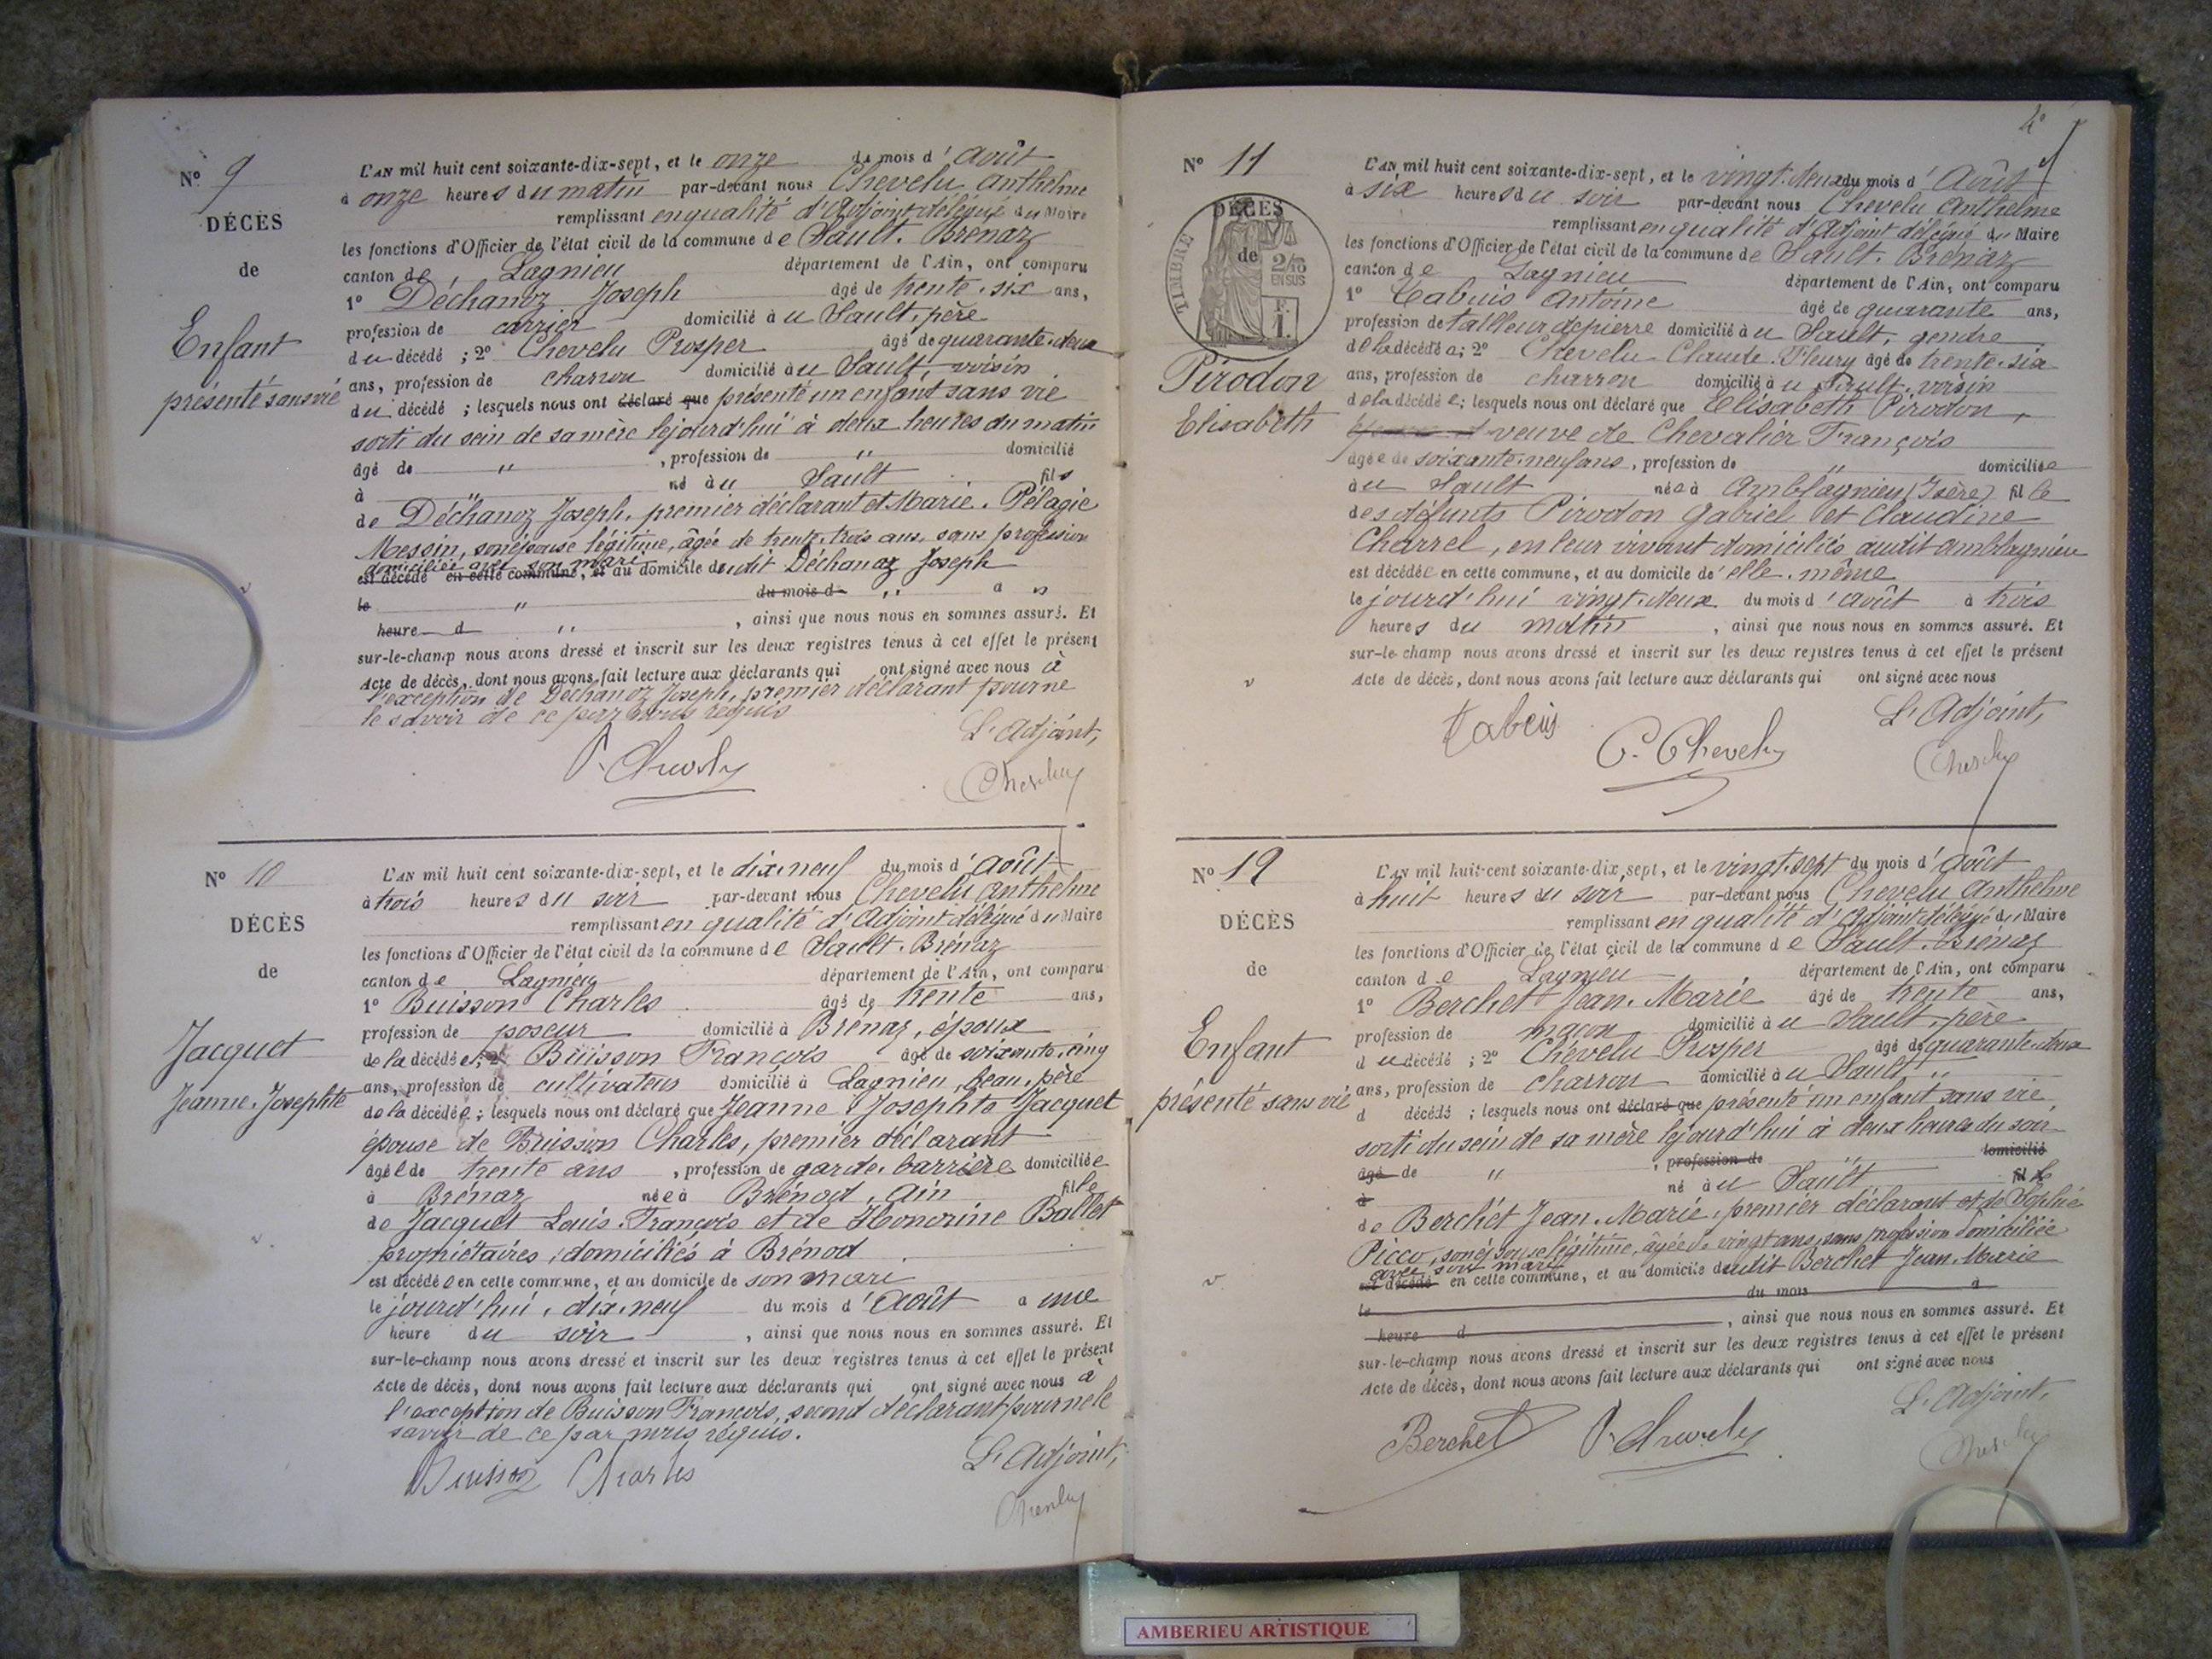 N° 9
DÉCÈS
de
Enfant
présenté sans vie
L'AN mil huit cent soixante-dix-sept, et le onze du mois d'Août
à onze heures du matin par-devant nous Chevelu Anthelme
remplissant en qualité d'Adjoint délégué du Maire
les fonctions d'Officier de l'état civil de la commune de Sault-Brénaz
canton de Lagnieu département de l'Ain, ont comparu
1° Déchanoz Joseph âgé de trente-six ans,
profession de carrier domicilié à u Sault, père
du décédé ; 2° Chevelu Prosper âgé de quarante-deux
ans, profession de charron domicilié au Sault, voisin
du décédé ; lesquels nous ont déclaré que présenté un enfant sans vie
sorti du sein de sa mère lejourd'hui à deux heures du matin
âgé de " , profession de " domicilié
à " né au Sault fils
de Déchanoz Joseph, premier déclarant et Marie-Pélagie
Messin, son épouse légitime, âgée de trente-trois ans, sans profession
domiciliée avec son mari
est décédé en cette commune, et au domicile dudit Déchanoz Joseph
le " du mois d " à "
heure d " , ainsi que nous nous en sommes assuré. Et
sur-le-champ nous avons dressé et inscrit sur les deux registres tenus à cet effet le présent
Acte de décès, dont nous avons fait lecture aux déclarants qui ont signé avec nous à
l'exception de Déchanoz Joseph, premier déclarant pour ne
le savoir de ce par nous requis
L'Adjoint,
P. Chevelu
Chevelu
N° 10
DÉCÈS
de
Jacquet
Jeanne-Josephte
L'AN mil huit cent soixante-dix-sept, et le dix-neuf du mois d'Août
à trois heures du soir par-devant nous Chevelu Anthelme
remplissant en qualité d'Adjoint délégué du Maire
les fonctions d'Officier de l'état civil de la commune de Sault-Brénaz
canton de Lagnieu département de l'Ain, ont comparu
1° Buisson Charles âgé de trente ans,
profession de poseur domicilié à Brénaz, époux
de la décédée; 2° Buisson François âgé de soixante-cinq
ans, profession de cultivateur domicilié à Lagnieu, beau-père
de la décédée ; lesquels nous ont déclaré que Jeanne Josephte Jacquet
épouse de Buisson Charles, premier déclarant
âgée de trente ans , profession de garde-barrière domiciliée
à Brénaz née à Brénod, Ain fille
de Jacquet Louis-François et de Honorine Ballet
propriétaires, domiciliés à Brénod
est décédée en cette commune, et au domicile de son mari
le jourd'hui, dix-neuf du mois d'Août à une
heure du soir , ainsi que nous nous en sommes assuré. Et
sur-le-champ nous avons dressé et inscrit sur les deux registres tenus à cet effet le présent
Acte de décès, dont nous avons fait lecture aux déclarants qui ont signé avec nous à
l'exception de Buisson François, second déclarant pour ne le
savoir de ce par nous requis.
L'Adjoint,
Buisson Charles
Chevelu
4e
N° 11
DÉCÈS
de
TIMBRE
2/10
EN SUS
F.
1.
Pirodon
Elisabeth
L'AN mil huit cent soixante-dix-sept, et le vingt-deux du mois d'Août
à six heures du soir par-devant nous Chevelu Anthelme
remplissant en qualité d'Adjoint délégué du Maire
les fonctions d'Officier de l'état civil de la commune de Sault-Brénaz
canton de Lagnieu département de l'Ain, ont comparu
1° Tabuis Antoine âgé de quarante ans,
profession de tailleur de pierre domicilié à u Sault, gendre
de la décédée; 2° Chevelu Claude-Fleury âgé de trente-six
ans, profession de charron domicilié à u Sault, voisin
de la décédée; lesquels nous ont déclaré que Elisabeth Pirodon,
veuve de Chevalier François
âgée de soixante-neuf ans, profession de " domiciliée
au Sault née à Amblagnieu (Isère) fille
des défunts Pirodon Gabriel et Claudine
Charrel, en leur vivant domiciliés audit Amblagnieu
est décédée en cette commune, et au domicile de elle-même
le jourd'hui vingt-deux du mois d'Août à trois
heures du matin , ainsi que nous nous en sommes assuré. Et
sur-le champ nous avons dressé et inscrit sur les deux registres tenus à cet effet le présent
Acte de décès, dont nous avons fait lecture aux déclarants qui ont signé avec nous
L'Adjoint,
Tabuis
C. Chevelu
Chevelu
N° 12
DÉCÈS
de
Enfant
présenté sans vie
L'AN mil huit cent soixante-dix-sept, et le vingt-sept du mois d'Août
à huit heures du soir par-devant nous Chevelu Anthelme
remplissant en qualité d'Adjoint délégué du Maire
les fonctions d'Officier de l'état civil de la commune de Sault-Brénaz
canton de Lagnieu département de l'Ain, ont comparu
1° Berchet Jean-Marie âgé de trente ans,
profession de maçon domicilié à u Sault, père
du décédé ; 2° Chevelu Prosper âgé de quarante-deux
ans, profession de charron domicilié à u Sault, "
d décédé ; lesquels nous ont déclaré que présenté un enfant sans vie
sorti du sein de sa mère lejourd'hui à deux heures du soir
âgé de " , profession de " domicilié
à né au Sault fil
de Berchet Jean-Marie, premier déclarant et de Sophie
Picco, son épouse légitime, âgée de vingt ans, sans profession domiciliée
avec son mari
est décédé en cette commune, et au domicile dudit Berchet Jean-Marie
le du mois à
heure d , ainsi que nous nous en sommes assuré. Et
sur-le-champ nous avons dressé et inscrit sur les deux registres tenus à cet effet le présent
Acte de décès, dont nous avons fait lecture aux déclarants qui ont signé avec nous
L'Adjoint,
Berchet
P. Chevelu
Chevelu
AMBERIEU ARTISTIQUE